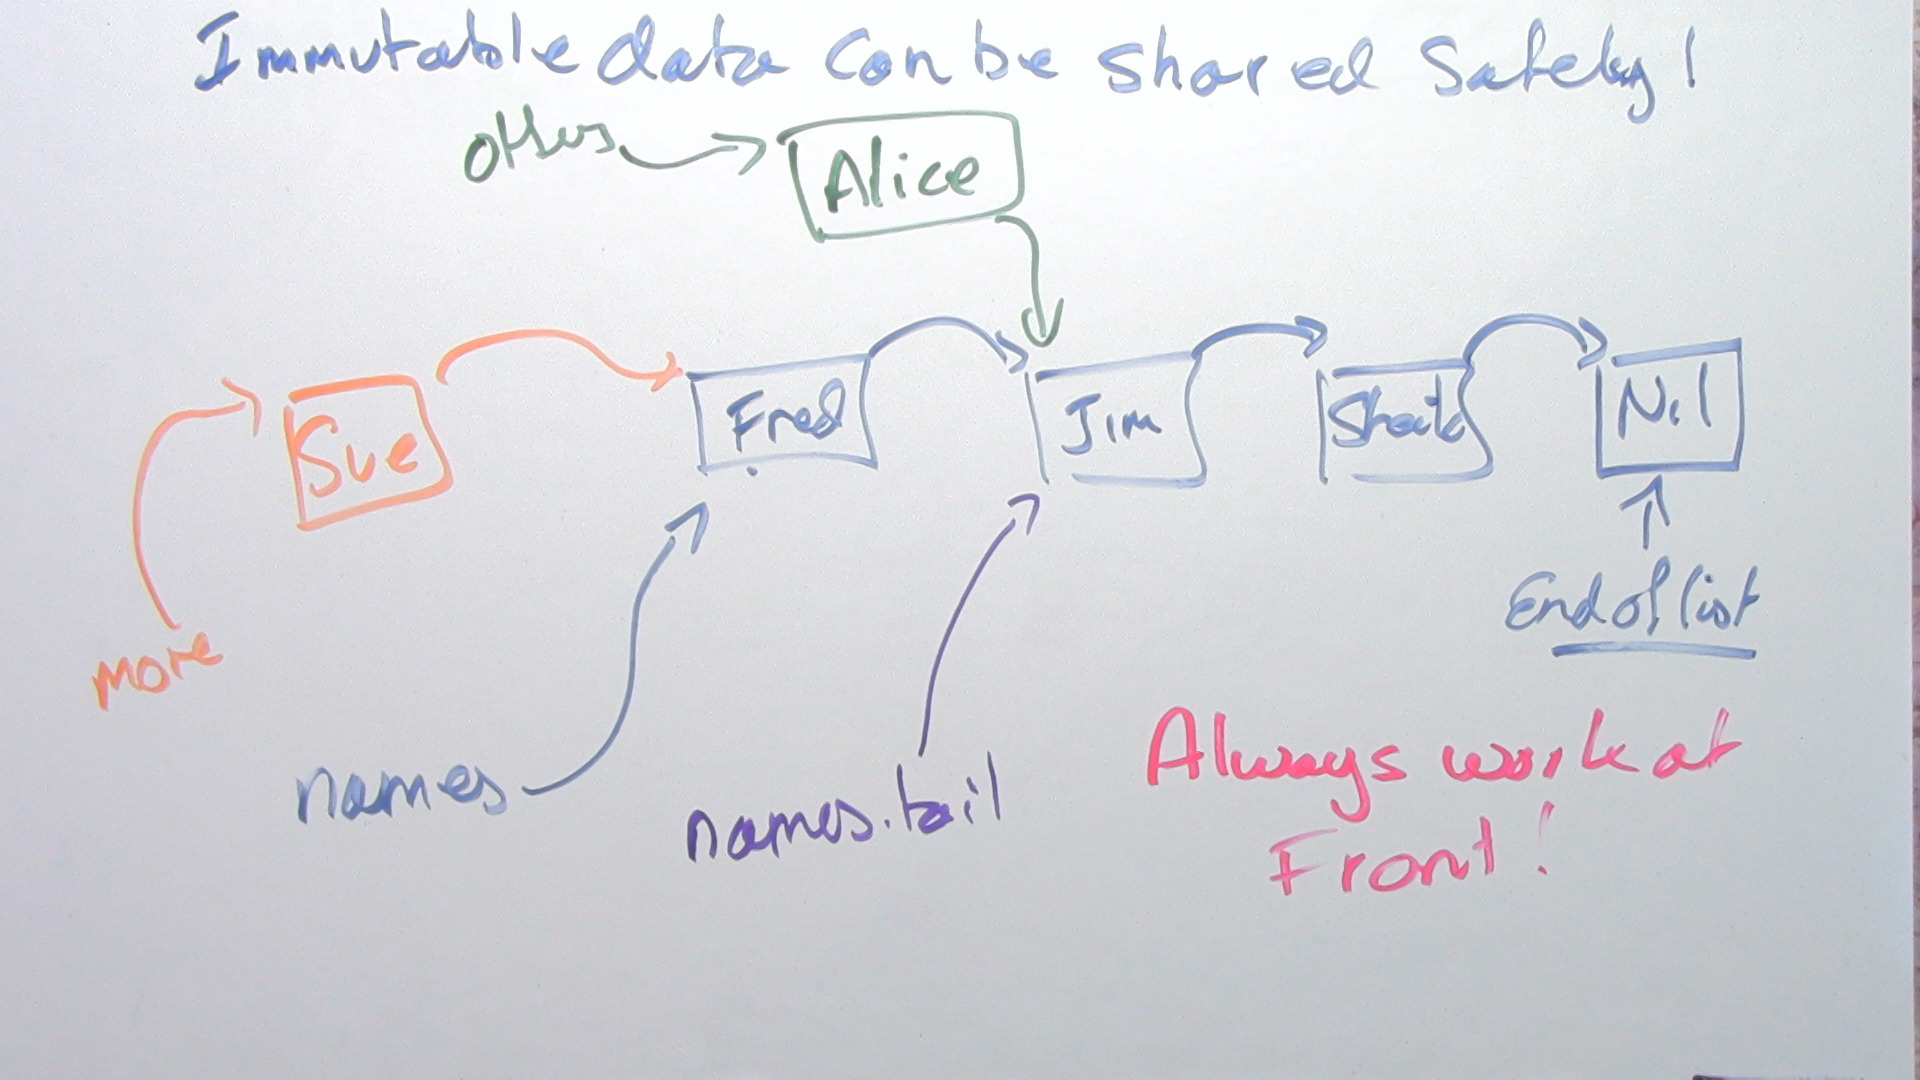 Immutable data can be shared safely!
others
Alice
Sue
Fred
Jim
Sheila
Nil
End of list
more
names
names.tail
Always work at
Front!